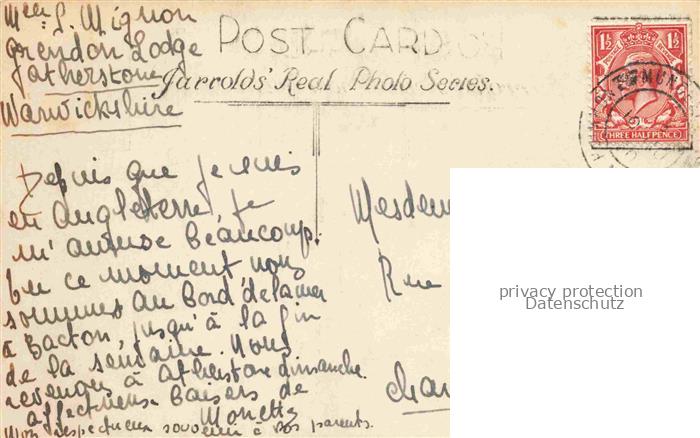 Melle G. Mignon
Grendon Lodge
Atherstone
Warwickshire
POST CARD
Jarrolds' Real Photo Series.
1½ 1½
THREE HALFPENCE
Depuis que je suis
en Angleterre, je
m'amuse beaucoup.
En ce moment nous
sommes au bord de la mer
à Bacton, jusqu'à la fin
de la semaine. Nous
revenons à Atherstone dimanche.
affectueux baisers de
Mon respectueux souvenir à vos parents.
Rue
privacy protection
Datenschutz